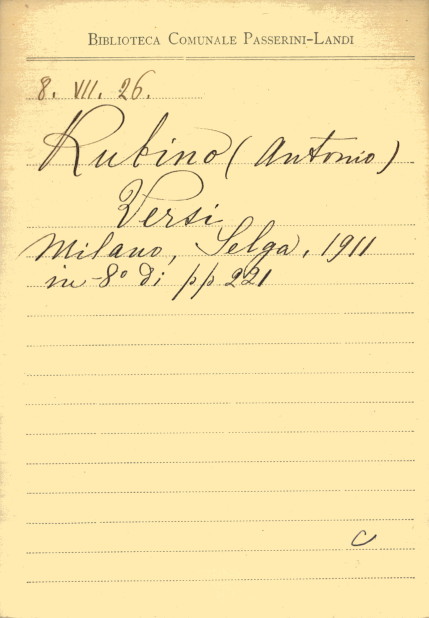 BIBLIOTECA COMUNALE PASSERINI-LANDI
8. VII. 26.
Rubino (Antonio)
Versi
Milano, Selga, 1911
in-8° di pp 221
C